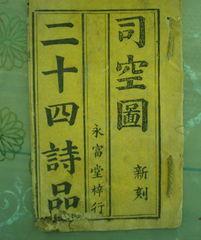 新刻
司空圖
二十四詩品
永富堂梓行